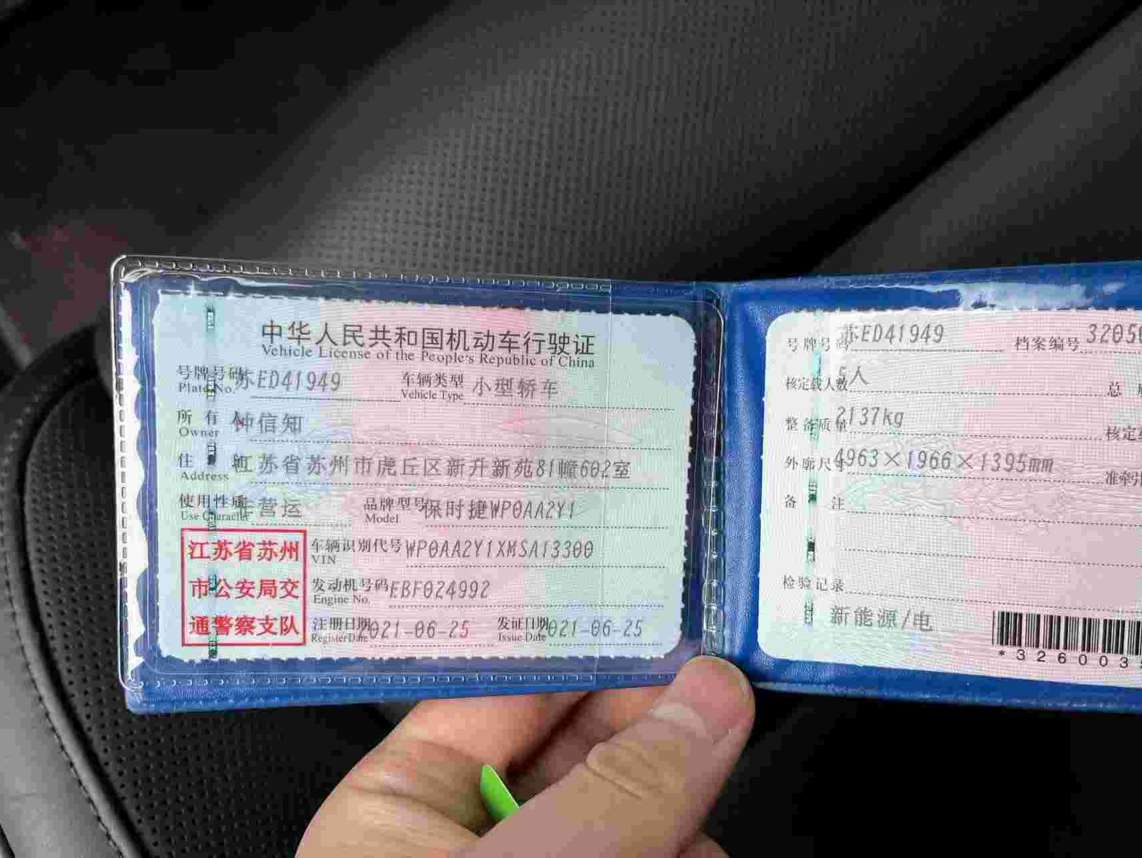 中华人民共和国机动车行驶证
Vehicle License of the People's Republic of China
号牌号码 苏ED41949 车辆类型 小型轿车
Plate No. Vehicle Type
所有人 钟信知
Owner
住 江苏省苏州市虎丘区新升新苑81幢602室
Address
使用性质 营运 品牌型号 保时捷WP0AA2Y1
Use Character Model
江苏省苏州
市公安局交
通警察支队
车辆识别代号 WP0AA2Y1XMSA13300
VIN
发动机号码 EBF024992
Engine No.
注册日期 021-06-25 发证日期 021-06-25
Register Date Issue Date
号牌号码 苏ED41949 档案编号 3205
核定载人数 5人 总
整备质量 2137kg 核定
外廓尺寸 4963×1966×1395mm 准牵
备 注
检验记录
新能源/电
*326003